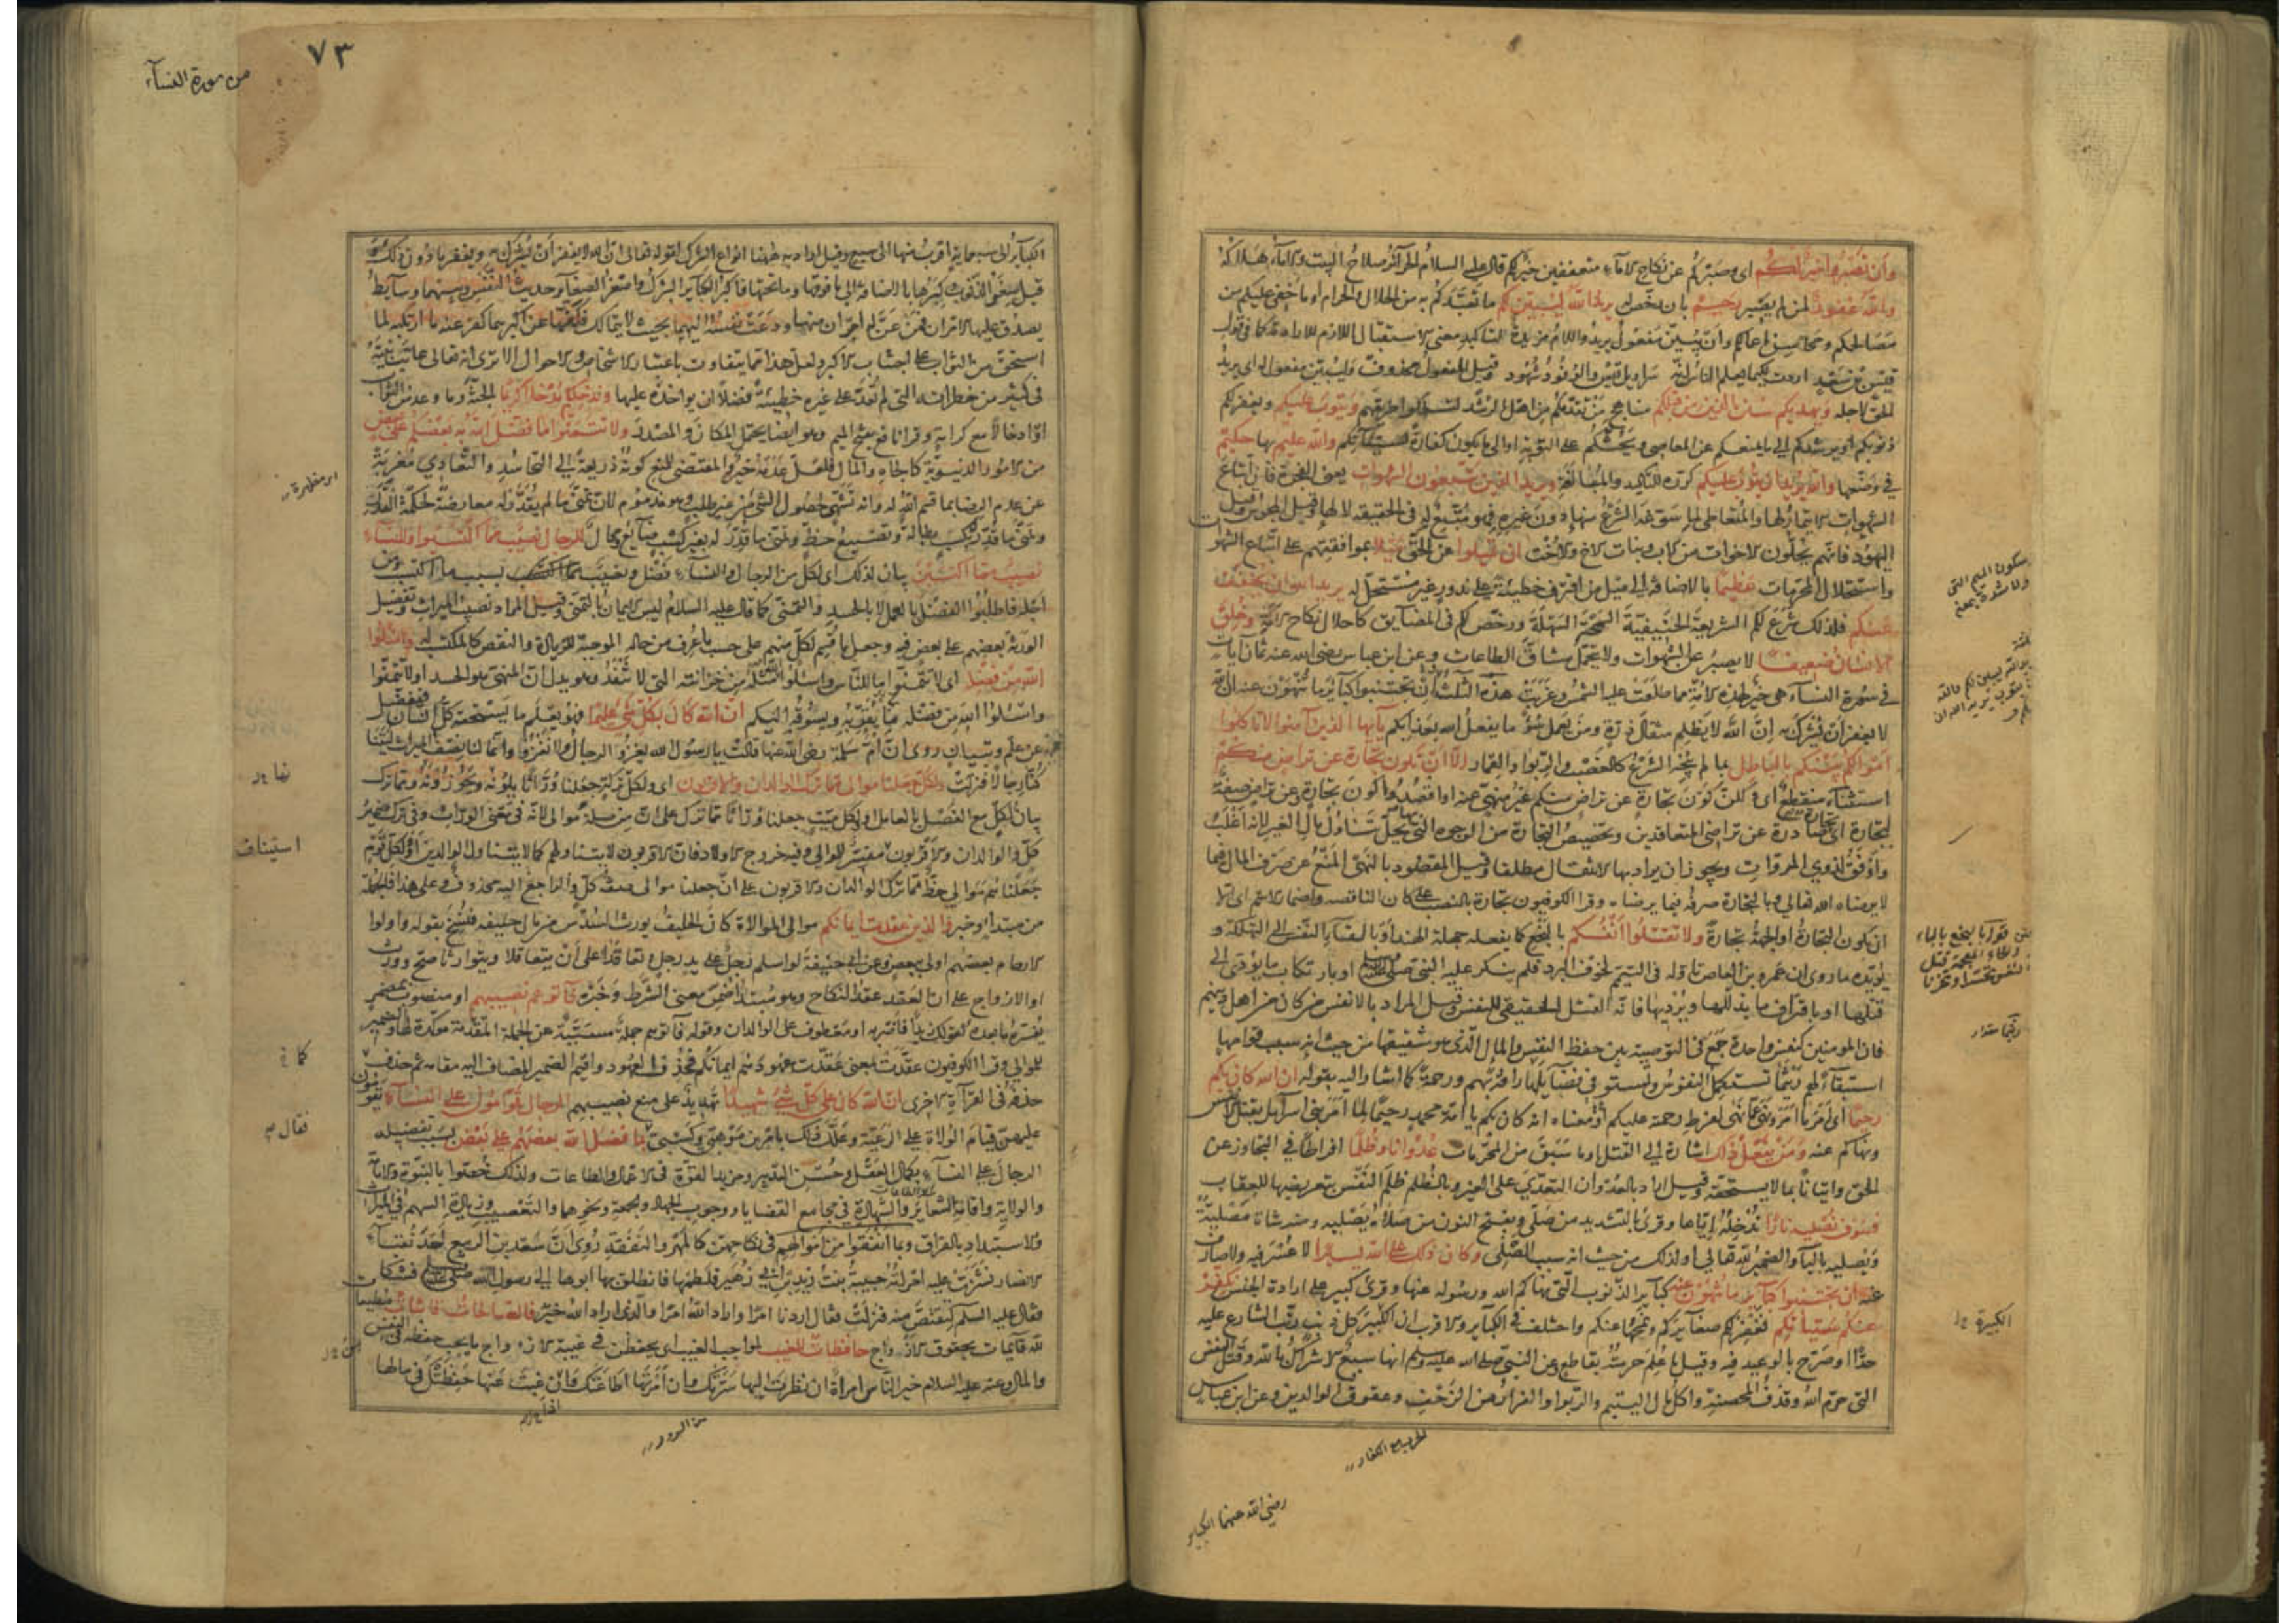 وأن تصبروا خير لكم اى وصبركم عن نكاح الاماء متعففين خير لكم قال عليه السلام الحرائر صلاح البيت والاماء هلاكه
والله غفور لمن لم يصبر رحيم بان رخص له يريد الله ليبين لكم ما تعبدكم به من الحلال والحرام او ما خفى عليكم من
مصالحكم ومحاسن اعمالكم وأن يبين مفعول يريد واللام مزيدة لتأكيد معنى الاستقبال اللازم للارادة كما فى قول
قيس بن سعد اردت لكيما يعلم الناس انه سراويل قيس والوفود شهود وقيل المفعول محذوف وليبين مفعول له اى يريد
الحق لاجله ويهديكم سنن الذين من قبلكم مناهج من تقدمكم من اهل الرشد لتسلكوا طريقهم ويتوب عليكم ويغفر لكم
ذنوبكم او يرشدكم الى ما يمنعكم عن المعاصى ويحثكم على التوبة او الى ما يكون كفارة لسيئاتكم والله عليم بها حكيم
فى وضعها والله يريد ان يتوب عليكم كرره للتأكيد والمبالغة ويريد الذين يتبعون الشهوات يعنى الفجرة فان اتباع
الشهوات الايتمار لها واما المتعاطى لما سوغه الشرع منها دون غيره فهو متبع له فى الحقيقة لا لها وقيل المجوس وقيل
اليهود فانهم يحلون الاخوات من الاب وبنات الاخ والاخت ان تميلوا عن الحق ميلا بموافقتهم على اتباع الشهوات
واستحلال المحرمات عظيما بالاضافة الى ميل من اقترف خطيئة على ندور غير مستحل له يريد الله ان يخفف
عنكم فلذلك شرع لكم الشريعة الحنيفية السمحة السهلة ورخص لكم فى المضايق كاحلال نكاح الامة وخلق
الانسان ضعيفا لا يصبر عن الشهوات ولا يتحمل مشاق الطاعات وعن ابن عباس رضى الله عنه ثمان آيات
فى سورة النساء هى خير لهذه الامة مما طلعت عليه الشمس وغربت هذه الثلث ان تجتنبوا كبائر ما تنهون عنه ان الله
لا يغفر أن يشرك به إن الله لا يظلم مثقال ذرة ومن يعمل سوءا ما يفعل الله بعذابكم يا أيها الذين آمنوا لا تأكلوا
أموالكم بينكم بالباطل بما لم يبحه الشرع كالغصب والربوا والقمار الا ان تكون تجارة عن تراض منكم
استثناء منقطع اى ولكن كون تجارة عن تراض منكم غير منهى عنه او اقصدوا كون تجارة وعن تراض صفة
لتجارة اى تجارة صادرة عن تراضى المتعاقدين وتخصيص التجارة من الوجوه التى بها يحل تناول مال الغير لانه اغلب
وأوفق لذوى المروات ويجوز ان يراد بها الانتقال مطلقا وقيل المقصود بالنهى المنع عن صرف المال فيما
لا يرضاه الله تعالى وبالتجارة صرفه فيما يرضاه وقرا الكوفيون تجارة بالنصب على كان الناقصة واضمار الاسم اى الا
ان تكون التجارة او الجهة تجارة ولا تقتلوا أنفسكم بالبخع كما يفعله جهلة الهند او بالقاء النفس الى التهلكة و
يؤيده ما روى ان عمرو بن العاص تأوله فى التيمم لخوف البرد فلم ينكر عليه النبى صلى الله عليه وسلم او بارتكاب ما يؤدى الى
قتلها او باقتراف ما يذللها ويرديها فانه القتل الحقيقى للنفس وقيل المراد بالانفس من كان من اهل دينهم
فان المومنين كنفس واحدة جمع فى التوصية بين حفظ النفس والمال الذى هو شقيقها من حيث انه سبب قوامها
استبقاء لهم ريثما تستكمل النفوس وتستوفى فضائلها رأفة بهم ورحمة كما اشار اليه بقوله ان الله كان بكم
رحيما اى أمر ما أمر ونهى عما نهى لفرط رحمته عليكم أو معناه انه كان بكم يا امة محمد رحيما لما امر بنى اسرائيل بقتل الانفس
ونهاكم عنه ومن يفعل ذلك اشارة الى القتل او ما سبق من المحرمات عدوانا وظلما افراطا فى التجاوز عن
الحق واتيانا بما لا يستحقه وقيل اراد بالعدوان التعدى على الغير وبالظلم ظلم النفس بتعريضها للعقاب
فسوف نصليه نارا ندخله اياها وقرئ بالتشديد من صلى وبفتح النون من صلاه يصليه ومنه شاة مصلية
ويصليه بالياء والضمير لله تعالى او لذلك من حيث انه سبب الصلى وكان ذلك على الله يسيرا لا عسر فيه ولا صارف
عنه ان تجتنبوا كبائر ما تنهون عنه كبائر الذنوب التى نهاكم الله ورسوله عنها وقرئ كبير على ارادة الجنس نكفر
عنكم سيئاتكم نغفر لكم صغائركم ونمحها عنكم واختلف فى الكبائر والاقرب ان الكبير كل ذنب رتب الشارع عليه
حدا او صرح بالوعيد فيه وقيل ما علم حرمته بقاطع وعن النبى صلى الله عليه وسلم انها سبع الاشراك بالله وقتل النفس
التى حرم الله وقذف المحصنة واكل مال اليتيم والربوا والفرار من الزحف وعقوق الوالدين وعن ابن عباس
رضى الله عنهما الكبائر
الكبيرة
٧٣
من سورة النسآء
الكبائر الى سبعمائة اقرب منها الى سبع وقيل اراد به ههنا انواع الشرك لقوله تعالى ان الله لا يغفر أن يشرك به ويغفر ما دون ذلك
قيل صغر الذنوب وكبرها بالاضافة الى ما فوقها وما تحتها فاكبر الكبائر الشرك واصغر الصغائر حديث النفس وبينهما وسائط
يصدق عليها الامران فمن عن له امران منها ودعت نفسه اليهما بحيث لا يتمالك فكفها عن اكبرهما كفر عنه ما ارتكبه لما
استحق من الثواب على اجتناب الاكبر ولعل هذا مما يتفاوت باعتبار الاشخاص والاحوال الا ترى انه تعالى عاتب نبيه
فى كثير من خطراته التى لم تعد على غيره خطيئة فضلا ان يؤاخذه عليها وندخلكم مدخلا كريما الجنة وما وعد من الثواب
او ادخالا مع كرامة وقرا نافع بفتح الميم وهو ايضا يحتمل المكان والمصدر ولا تتمنوا ما فضل الله به بعضكم على بعض
من الامور الدنيوية كالجاه والمال فلعل عدمه خير والمقتضى للمنع كونه ذريعة الى التحاسد والتعادى معربة
عن عدم الرضا بما قسم الله له وانه تشهى لحصول الشئ من غير طلب وهو مذموم لان تمنى ما لم يقدر له معارضة لحكمة القدر
وتمنى ما قدر له بكسب بطالة وتضييع حظ وتمنى ما قدر له بغير كسب ضايع ومحال للرجال نصيب مما اكتسبوا وللنساء
نصيب مما اكتسبن بيان لذلك اى لكل من الرجال والنساء فضل ونصيب بسبب ما اكتسب ومن
أجله فاطلبوا الفضل بالعمل لا بالحسد والتمنى كما قال عليه السلام ليس الايمان بالتمنى وقيل المراد نصيب الميراث وتفضيل
الورثة بعضهم على بعض فيه وجعل ما قسم لكل منهم على حسب ما عرف من حاله الموجبة للزيادة والنقص كالمكتسب له واسئلوا
الله من فضله اى لا تتمنوا ما للناس واسئلوا الله مثله من خزائنه التى لا تنفد وهو يدل ان المنهى هو الحسد او لا تتمنوا
واسئلوا الله من فضله بما يقربه ويسوقه اليكم ان الله كان بكل شئ عليما فهو يعلم ما يستحقه كل انسان فيفضل
عن علم وتبيان روى ان ام سلمة رضى الله عنها قالت يا رسول الله يغزو الرجال ولا نغزوا وانما لنا نصف الميراث ليتنا
كنا رجالا فنزلت ولكل جعلنا موالى مما ترك الوالدان والاقربون اى ولكل تركة جعلنا وراثا يلونه ويحوزونه ومما ترك
بيان لكل مع الفصل بالعامل او لكل ميت جعلنا وراثا مما ترك على ان من صلة موالى لانه فى معنى الوراث وفى ترك ضمير
كل والوالدان والاقربون مفسر للموالى وفيه خروج الاولاد فان الاقربون لا يتناولهم كما لا يتناول الوالدين او ولكل قوم
جعلناهم موالى حظ مما ترك الوالدان والاقربون على ان جعلنا موالى صفة كل والراجع اليه محذوف وعلى هذا فالجملة
من مبتدا وخبر والذين عقدت ايمانكم موالى الموالاة كان الحليف يورث السدس من مال حليفه فنسخ بقوله واولوا
الارحام بعضهم اولى ببعض وعن ابى حنيفة لو اسلم رجل على يد رجل وتعاقدا على أن يتعاقلا ويتوارثا صح وورث
او الازواج على ان العقد عقد النكاح وهو مبتدأ ضمن معنى الشرط وخبره فآتوهم نصيبهم او منصوب بمضمر
يفسره ما بعده كقولك زيدا فاضربه او معطوف على الوالدان وقوله فآتوهم جملة مسببة عن الجملة المتقدمة مؤكدة لها والضمير
للموالى وقرا الكوفيون عقدت بمعنى عقدت عهودهم ايمانكم فحذف العهود واقيم الضمير المضاف اليه مقامه ثم حذف
حذفه فى القراءة الاخرى ان الله كان على كل شئ شهيدا تهديد على منع نصيبهم الرجال قوامون على النساء يقومون
عليهن قيام الولاة على الرعية وعلل ذلك بامرين موهبى وكسبى بما فضل الله بعضهم على بعض بسبب تفضيله
الرجال على النساء بكمال العقل وحسن التدبير ومزيد القوة فى الاعمال والطاعات ولذلك خصوا بالنبوة والامامة
والولاية واقامة الشعائر والشهادة فى مجامع القضايا ووجوب الجهاد والجمعة ونحوهما والتعصيب وزيادة السهم فى الميراث
والاستبداد بالفراق وبما انفقوا من اموالهم فى نكاحهن كالمهر والنفقة روى أن سعد بن الربيع احد نقباء
الانصار نشزت عليه امرأته حبيبة بنت زيد بن ابى زهير فلطمها فانطلق بها ابوها الى رسول الله صلى الله عليه وسلم فشكا
فقال عليه السلم لتقتص منه فنزلت فقال اردنا امرا واراد الله امرا والذى اراد الله خير فالصالحات قانتات مطيعات
لله قائمات بحقوق الازواج حافظات للغيب لمواجب الغيب اى يحفظن فى غيبة الازواج ما يجب حفظه فى النفس
والمال وعنه عليه السلام خير النساء امرأة ان نظرت اليها سرتك وان أمرتها اطاعتك وان غبت عنها حفظتك فى مالها
استيناف